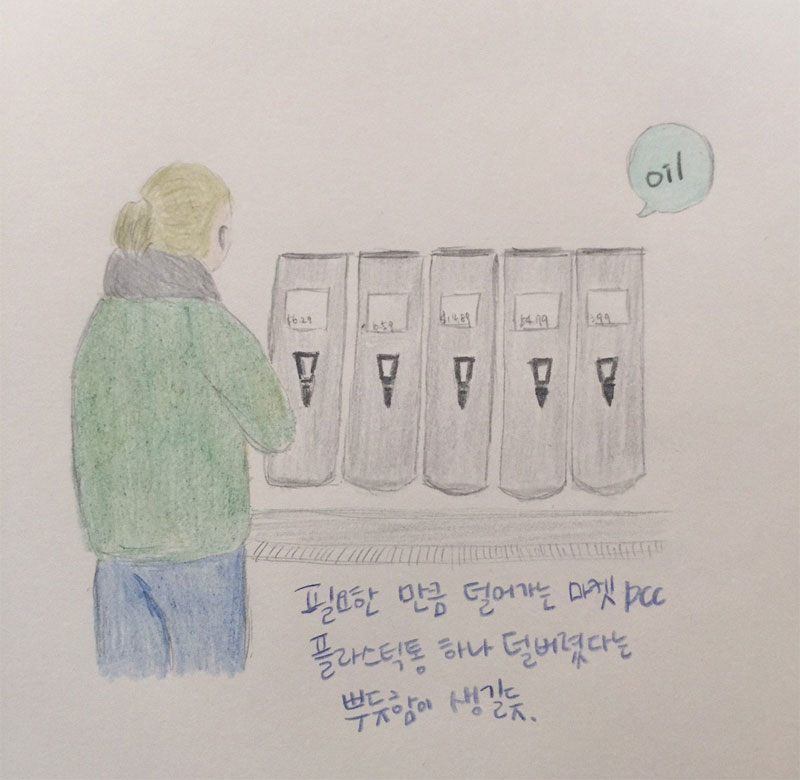 oil
$6.29
6.59
$14.89
$4.79
3.99
필요한 만큼 덜어가는 마켓 pcc
플라스틱통 하나 덜버렸다는
뿌듯함이 생길듯.